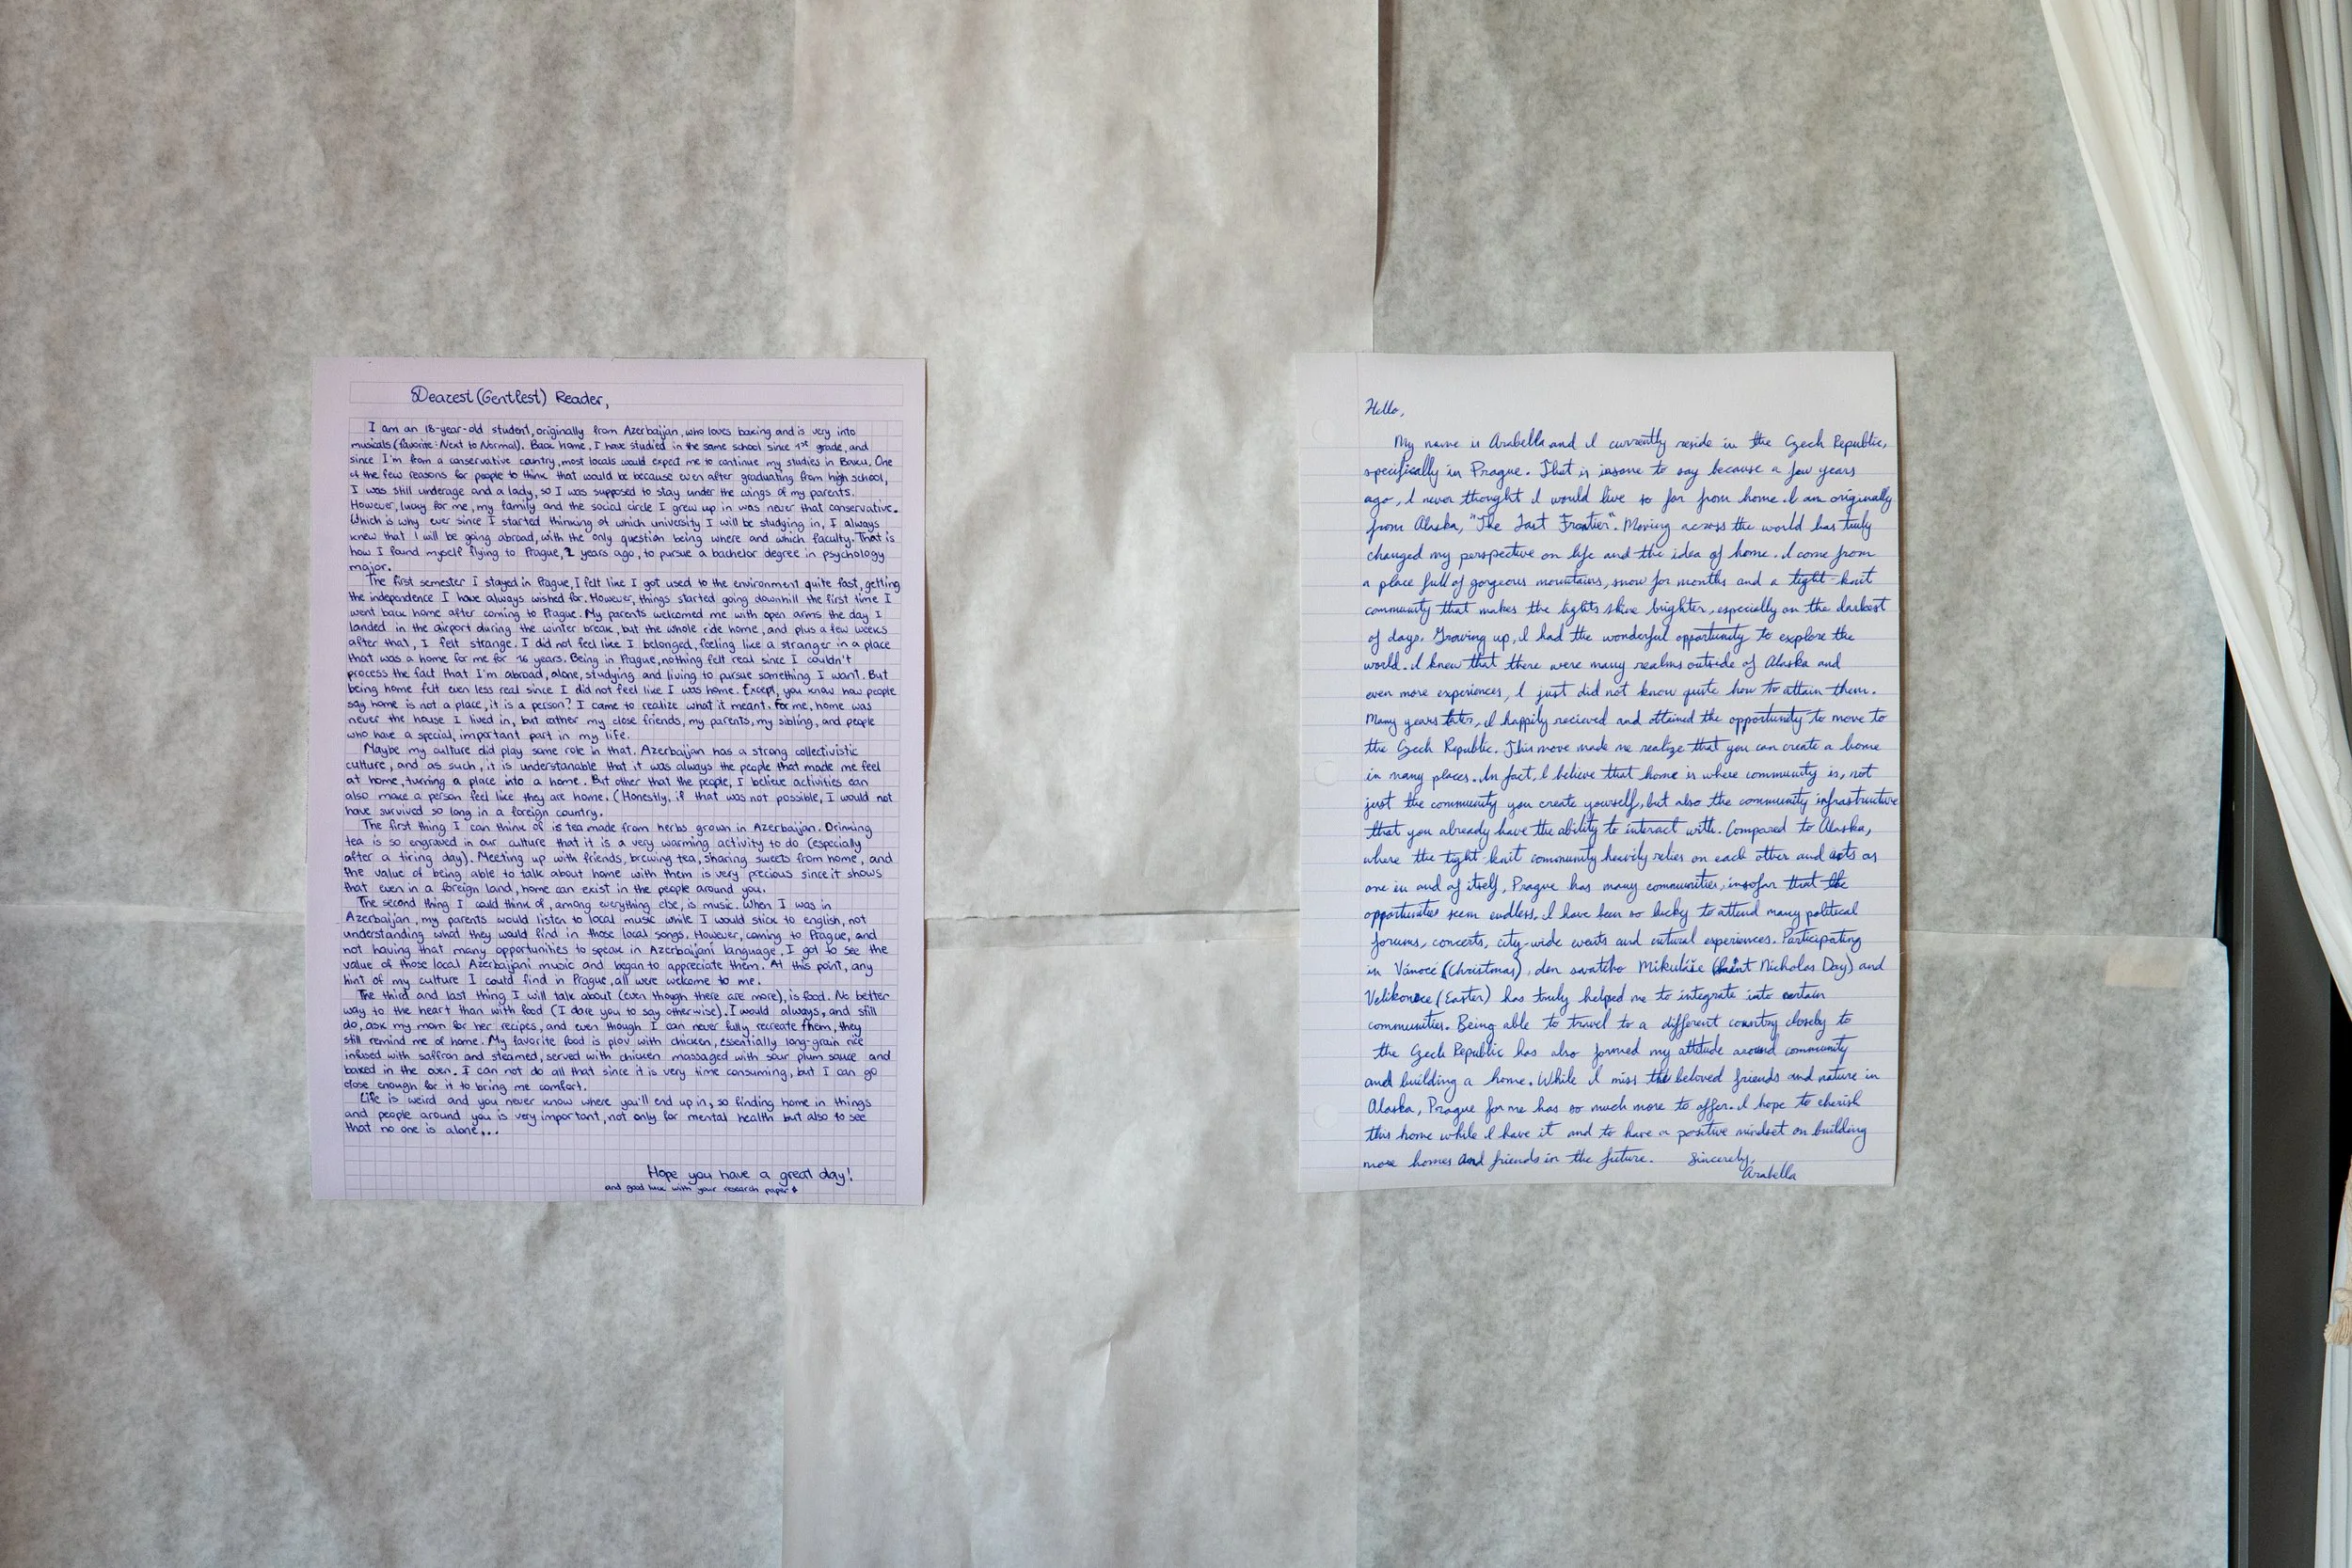 Dearest (Gentlest) Reader,
I am an 18-year-old student, originally from Azerbaijan, who loves baking and is very into
musicals (favorite: Next to Normal). Back home, I have studied in the same school since 1st grade, and
since I'm from a conservative country, most locals would expect me to continue my studies in Baku. One
of the few reasons for people to think that would be because even after graduating from high school,
I was still underage and a lady, so I was supposed to stay under the wings of my parents.
However, lucky for me, my family and the social circle I grew up in was never that conservative.
Which is why ever since I started thinking of which university I will be studying in, I always
knew that I will be going abroad, with the only question being where and which faculty. That is
how I found myself flying to Prague, 2 years ago, to pursue a bachelor degree in psychology
major.
The first semester I stayed in Prague, I felt like I got used to the environment quite fast, getting
the independence I have always wished for. However, things started going downhill the first time I
went back home after coming to Prague. My parents welcomed me with open arms the day I
landed in the airport during the winter break, but the whole ride home, and plus a few weeks
after that, I felt strange. I did not feel like I belonged, feeling like a stranger in a place
that was a home for me for 16 years. Being in Prague, nothing felt real since I couldn't
process the fact that I'm abroad, alone, studying and living to pursue something I want. But
being home felt even less real since I did not feel like I was home. Except, you know how people
say home is not a place, it is a person? I came to realize what it meant. For me, home was
never the house I lived in, but rather my close friends, my parents, my sibling, and people
who have a special, important part in my life.
Maybe my culture did play some role in that. Azerbaijan has a strong collectivistic
culture, and as such, it is understanable that it was always the people that made me feel
at home, turning a place into a home. But other that the people, I believe activities can
also make a person feel like they are home. (Honestly, if that was not possible, I would not
have survived so long in a foreign country.
The first thing I can think of is tea made from herbs grown in Azerbaijan. Drinking
tea is so engraved in our culture that it is a very warming activity to do (especially
after a tiring day). Meeting up with friends, brewing tea, sharing sweets from home, and
the value of being able to talk about home with them is very precious since it shows
that even in a foreign land, home can exist in the people around you.
The second thing I could think of, among everything else, is music. When I was in
Azerbaijan, my parents would listen to local music while I would stick to english, not
understanding what they would find in those local songs. However, coming to Prague, and
not having that many opportunities to speak in Azerbaijani language, I got to see the
value of those local Azerbaijani music and began to appreciate them. At this point, any
hint of my culture I could find in Prague, all were welcome to me.
The third and last thing I will talk about (even though there are more), is food. No better
way to the heart than with food (I dare you to say otherwise). I would always, and still
do, ask my mom for her recipes, and even though I can never fully recreate them, they
still remind me of home. My favorite food is plov with chicken, essentially long-grain rice
infused with saffron and steamed, served with chicken massaged with sour plum sauce and
baked in the oven. I can not do all that since it is very time consuming, but I can go
close enough for it to bring me comfort.
Life is weird and you never know where you'll end up in, so finding home in things
and people around you is very important, not only for mental health but also to see
that no one is alone...
Hope you have a great day!
and good luck with your research paper
Hello,
My name is Arabella and I currently reside in the Czech Republic,
specifically in Prague. That is insane to say because a few years
ago, I never thought I would live so far from home. I am originally
from Alaska, "The Last Frontier". Moving across the world has truly
changed my perspective on life and the idea of home. I come from
a place full of gorgeous mountains, snow for months and a tight-knit
community that makes the lights shine brighter, especially on the darkest
of days. Growing up, I had the wonderful opportunity to explore the
world. I knew that there were many realms outside of Alaska and
even more experiences, I just did not know quite how to attain them.
Many years later, I happily recieved and attained the opportunity to move to
the Czech Republic. This move made me realize that you can create a home
in many places. In fact, I believe that home is where community is, not
just the community you create yourself, but also the community infrastructure
that you already have the ability to interact with. Compared to Alaska,
where the tight knit community heavily relies on each other and acts as
one in and of itself, Prague has many communities, insofar that the
opportunities seem endless. I have been so lucky to attend many political
forums, concerts, city-wide events and cultural experiences. Participating
in Vánoce (Christmas), den svatého Mikuláše (Saint Nicholas Day) and
Velikonoce (Easter) has truly helped me to integrate into certain
communities. Being able to travel to a different country closeby to
the Czech Republic has also formed my attitude around community
and building a home. While I miss the beloved friends and nature in
Alaska, Prague for me has so much more to offer. I hope to cherish
this home while I have it and to have a positive mindset on building
more homes and friends in the future. Sincerely,
Arabella